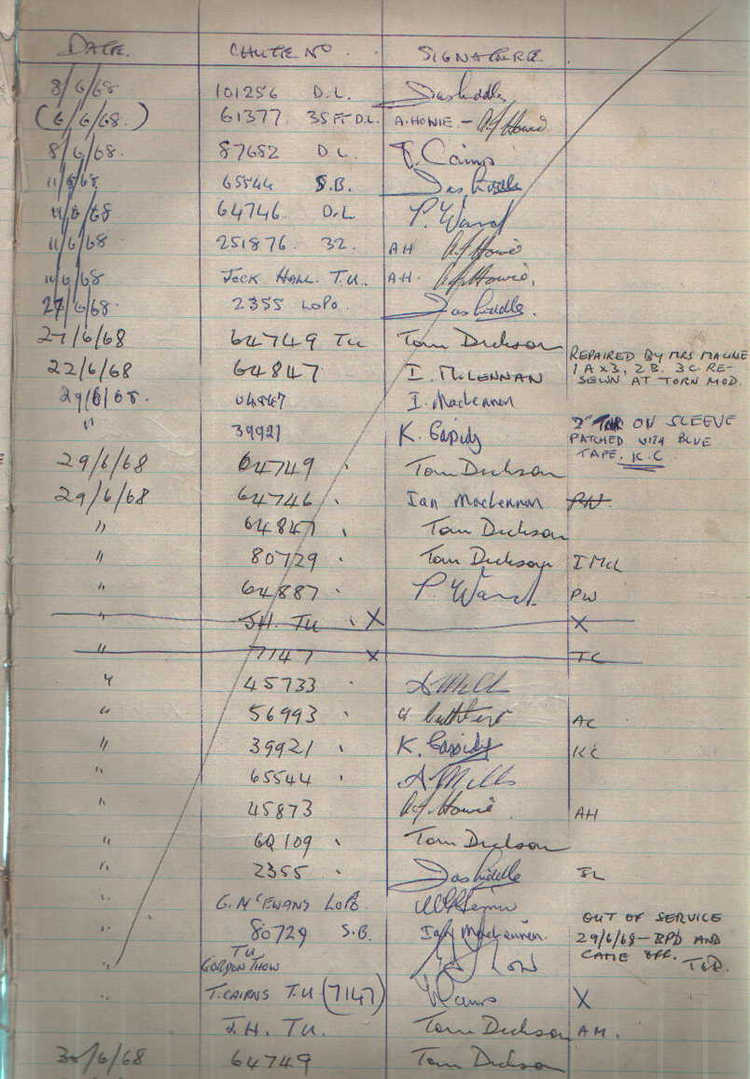 DATE. CHUTE NO. SIGNATURE.
8/6/68 101256 D.L.
(6/6/68.) 61377 35 FT D.L. A. HOWIE - A J Howie
8/6/68. 87682 D L.
11/6/68 65544 S.B.
11/6/68 64746. D.L P. Ward
11/6/68 251876. 32. AH A J Howie
11/6/68 JOCK HALL. T.U. AH. A J Howie.
27/6/68. 2355 LOPO.
27/6/68 64749 TU Tom Dickson
22/6/68 64847 I. McLENNAN
REPAIRED BY MRS
1 A x 3, 2 B. 3 C. RE-
SEWN AT TORN MOD.
29/6/68. 64847 I. MacLennan
" 39921 K. Cassidy
2" TEAR ON SLEEVE
PATCHED WITH BLUE
TAPE. K.C
29/6/68 64749 Tom Dickson
29/6/68 64746 Ian MacLennan PW.
" 64847 Tom Dickson
" 80729 Tom Dickson I McL
" 64887 P. Ward PW
" J.H. TU X X
" 7147 X TC
" 45733 A Mills
" 56993 AC
" 39921 K. Cassidy KC
" 65544 A Mills
" 45873 A J. Howie AH
" 60109 Tom Dickson
" 2355 IL
" G. McEWANS LOPO
" 80729 S.B. Ian MacLennan.
OUT OF SERVICE
29/6/68 - BPD AND
CAME OFF.
" T U
GORDON THOW
" T. CAIRNS T.U (7147) X
J.H. TU. Tom Dickson AM.
30/6/68 64749 Tom Dickson